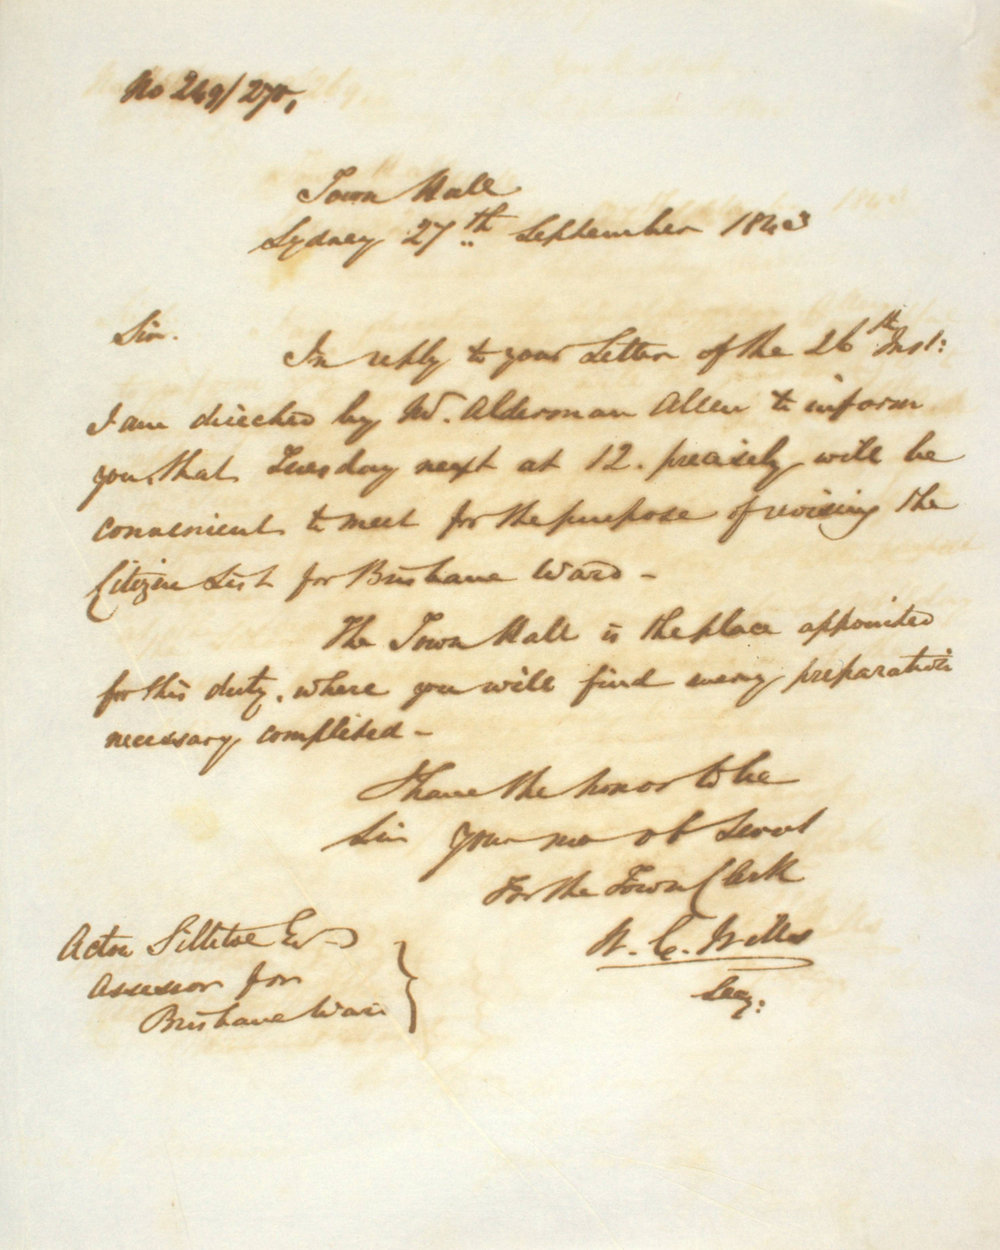 No 269/270,
Town Hall
Sydney 27th September 1843
Sir.
In reply to your Letter of the 26th Inst:
I am directed by Mr. Alderman Allen to inform
you, that Tuesday next at 12. precisely will be
convenient to meet for the purpose of revising the
Citizen List for Brisbane Ward -
The Town Hall is the place appointed
for this duty, where you will find every preparation
necessary completed -
I have the honor to be
Sir Your mo ob Servt
For the Town Clerk
W. C. Wills
Acton Sillitoe Esq
Assessor for
Brisbane Ward